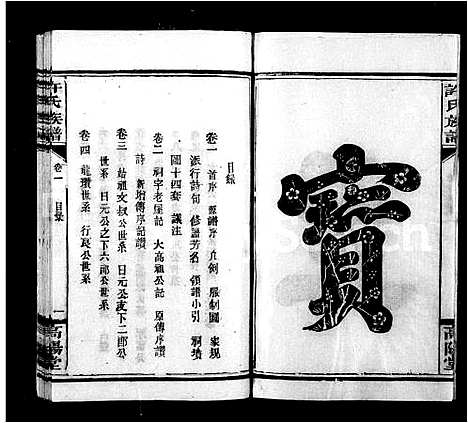 許氏族譜
寶
高陽堂
目錄
卷一 首序 舊譜序 凡例 服制圖 家規
派行詩句 修譜芳名 領譜小引 祠墳
圖十四套 議注
卷二 祠宇老屋記 大高祖公記 原傳序讚
詩 新增傳序記讚
卷三 始祖文叔公世系 日元公改下二郎公
世系
卷四 龍瓚世系 日元公之下六郎公世系 行良公世系
許氏族譜
卷一 目錄
一
高陽堂